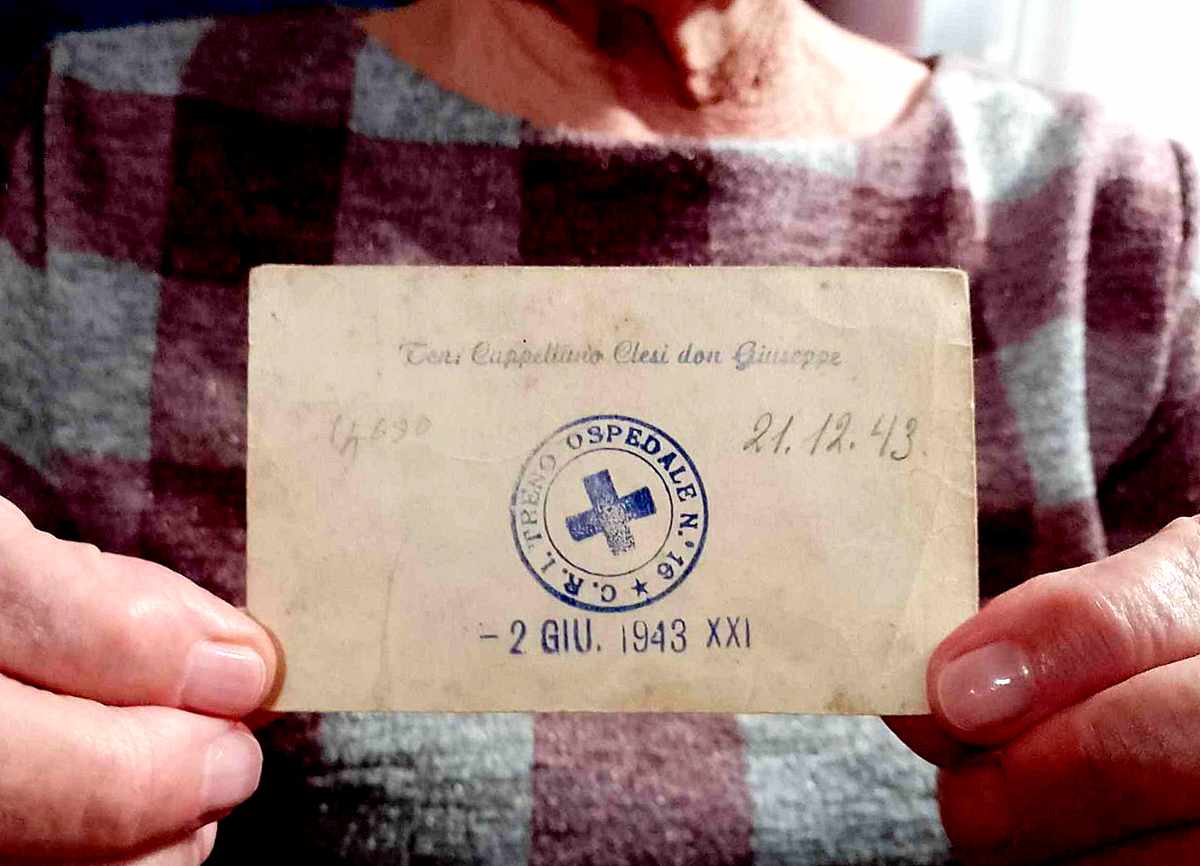 Ten. Cappellano Clesi don Giuseppe
21.12.43.
C.R.I. TRENO OSPEDALE N.° 16 ★
- 2 GIU. 1943 XXI